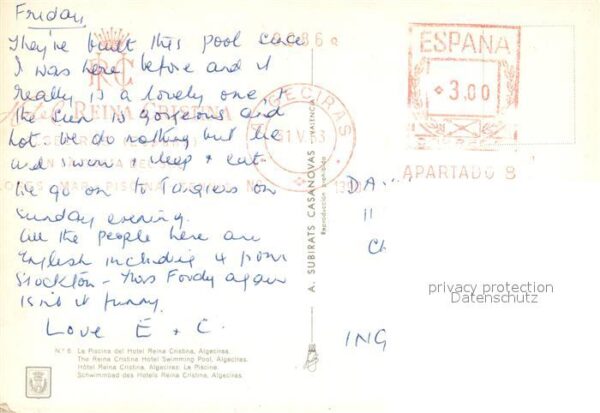 Friday
They've built this pool since
I was here before and it
really is a lovely one,
the sun is gorgeous and
hot. We do nothing but lie
and swim & sleep & eat.
We go on to Tangiers on
Sunday evening.
All the people here are
English including 4 from
Stockton - Mrs Fordy again
Isn't it funny.
Love E & C.
RC
Hotel REINA CRISTINA
ALGECIRAS
ESPAÑA
3.00
APARTADO 8
A. SUBIRATS CASANOVAS - VALENCIA
Reproducción prohibida
DA
11
Ch
ING
privacy protection
Datenschutz
N.º 6 La Piscina del Hotel Reina Cristina, Algeciras.
The Reina Cristina Hotel Swimming Pool, Algeciras.
Hôtel Reina Cristina, Algeciras: La Piscine.
Schwimmbad des Hotels Reina Cristina, Algeciras.